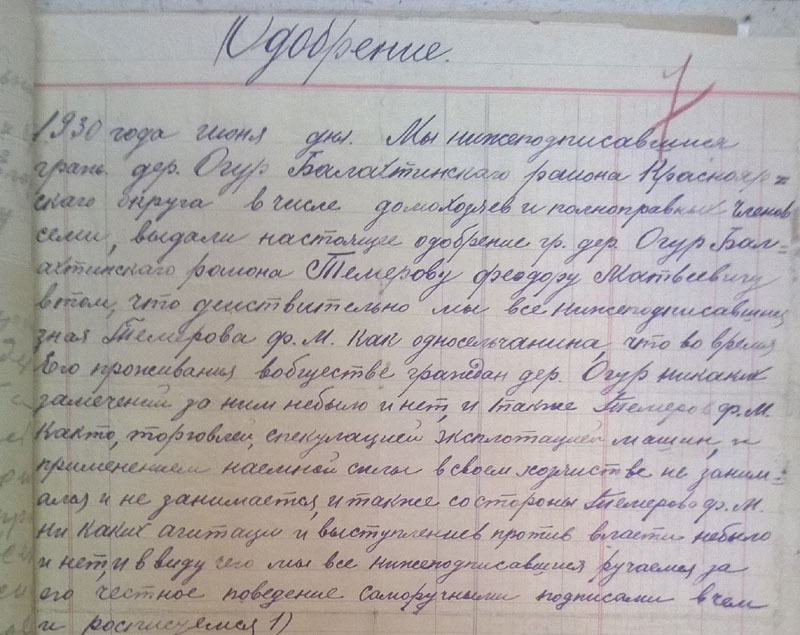 Одобрение.
1930 года июня дня. Мы нижеподписавшиеся
граж. дер. Огур Балахтинского района Краснояр=
ского округа в числе домохозяев и полноправных членов
семи, выдали настоящее одобрение гр. дер. Огур Бал=
ахтинского района Темерову Феодору Матвеевичу
в том, что действительно мы все нижеподписавшиеся
зная Темерова Ф. М. как односельчанина, что во время
Его проживания вобществе граждан дер. Огур никаких
замечений за ним небыло и нет, и также Темеров Ф. М.
как то, торговлей, спекуляцией эксплотацией машин, и
применением наемной силы в своем хозяистве не заним-
ался и не занимается, и также со стороны Темерова Ф. М.
ни каких агитации и выступлениев против власти небыло
и нет, и ввиду чего мы все нижеподписавшиеся ручаемся за
его честное поведение саморучными подписами в чем
и росписуемся 1)